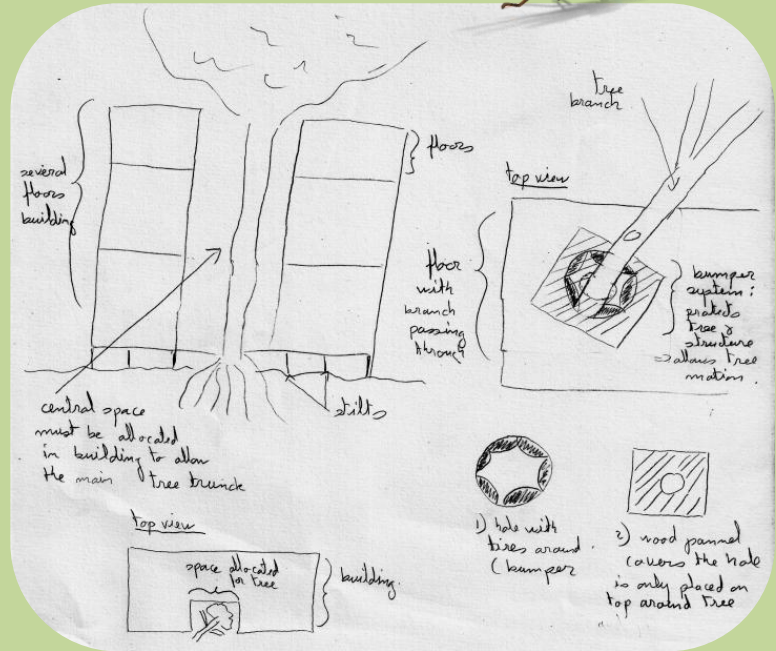 several
floors
building
floors
tree
branch
top view
floor
with
branch
passing
through
bumper
system :
protects
tree &
structure
=> allows tree
motion.
central space
must be allocated
in building to allow
the main tree trunck
stilts
top view
space allocated
for tree
building.
1) hole with
tires around.
(bumper
2) wood pannel
covers the hole
is only placed on
top around tree